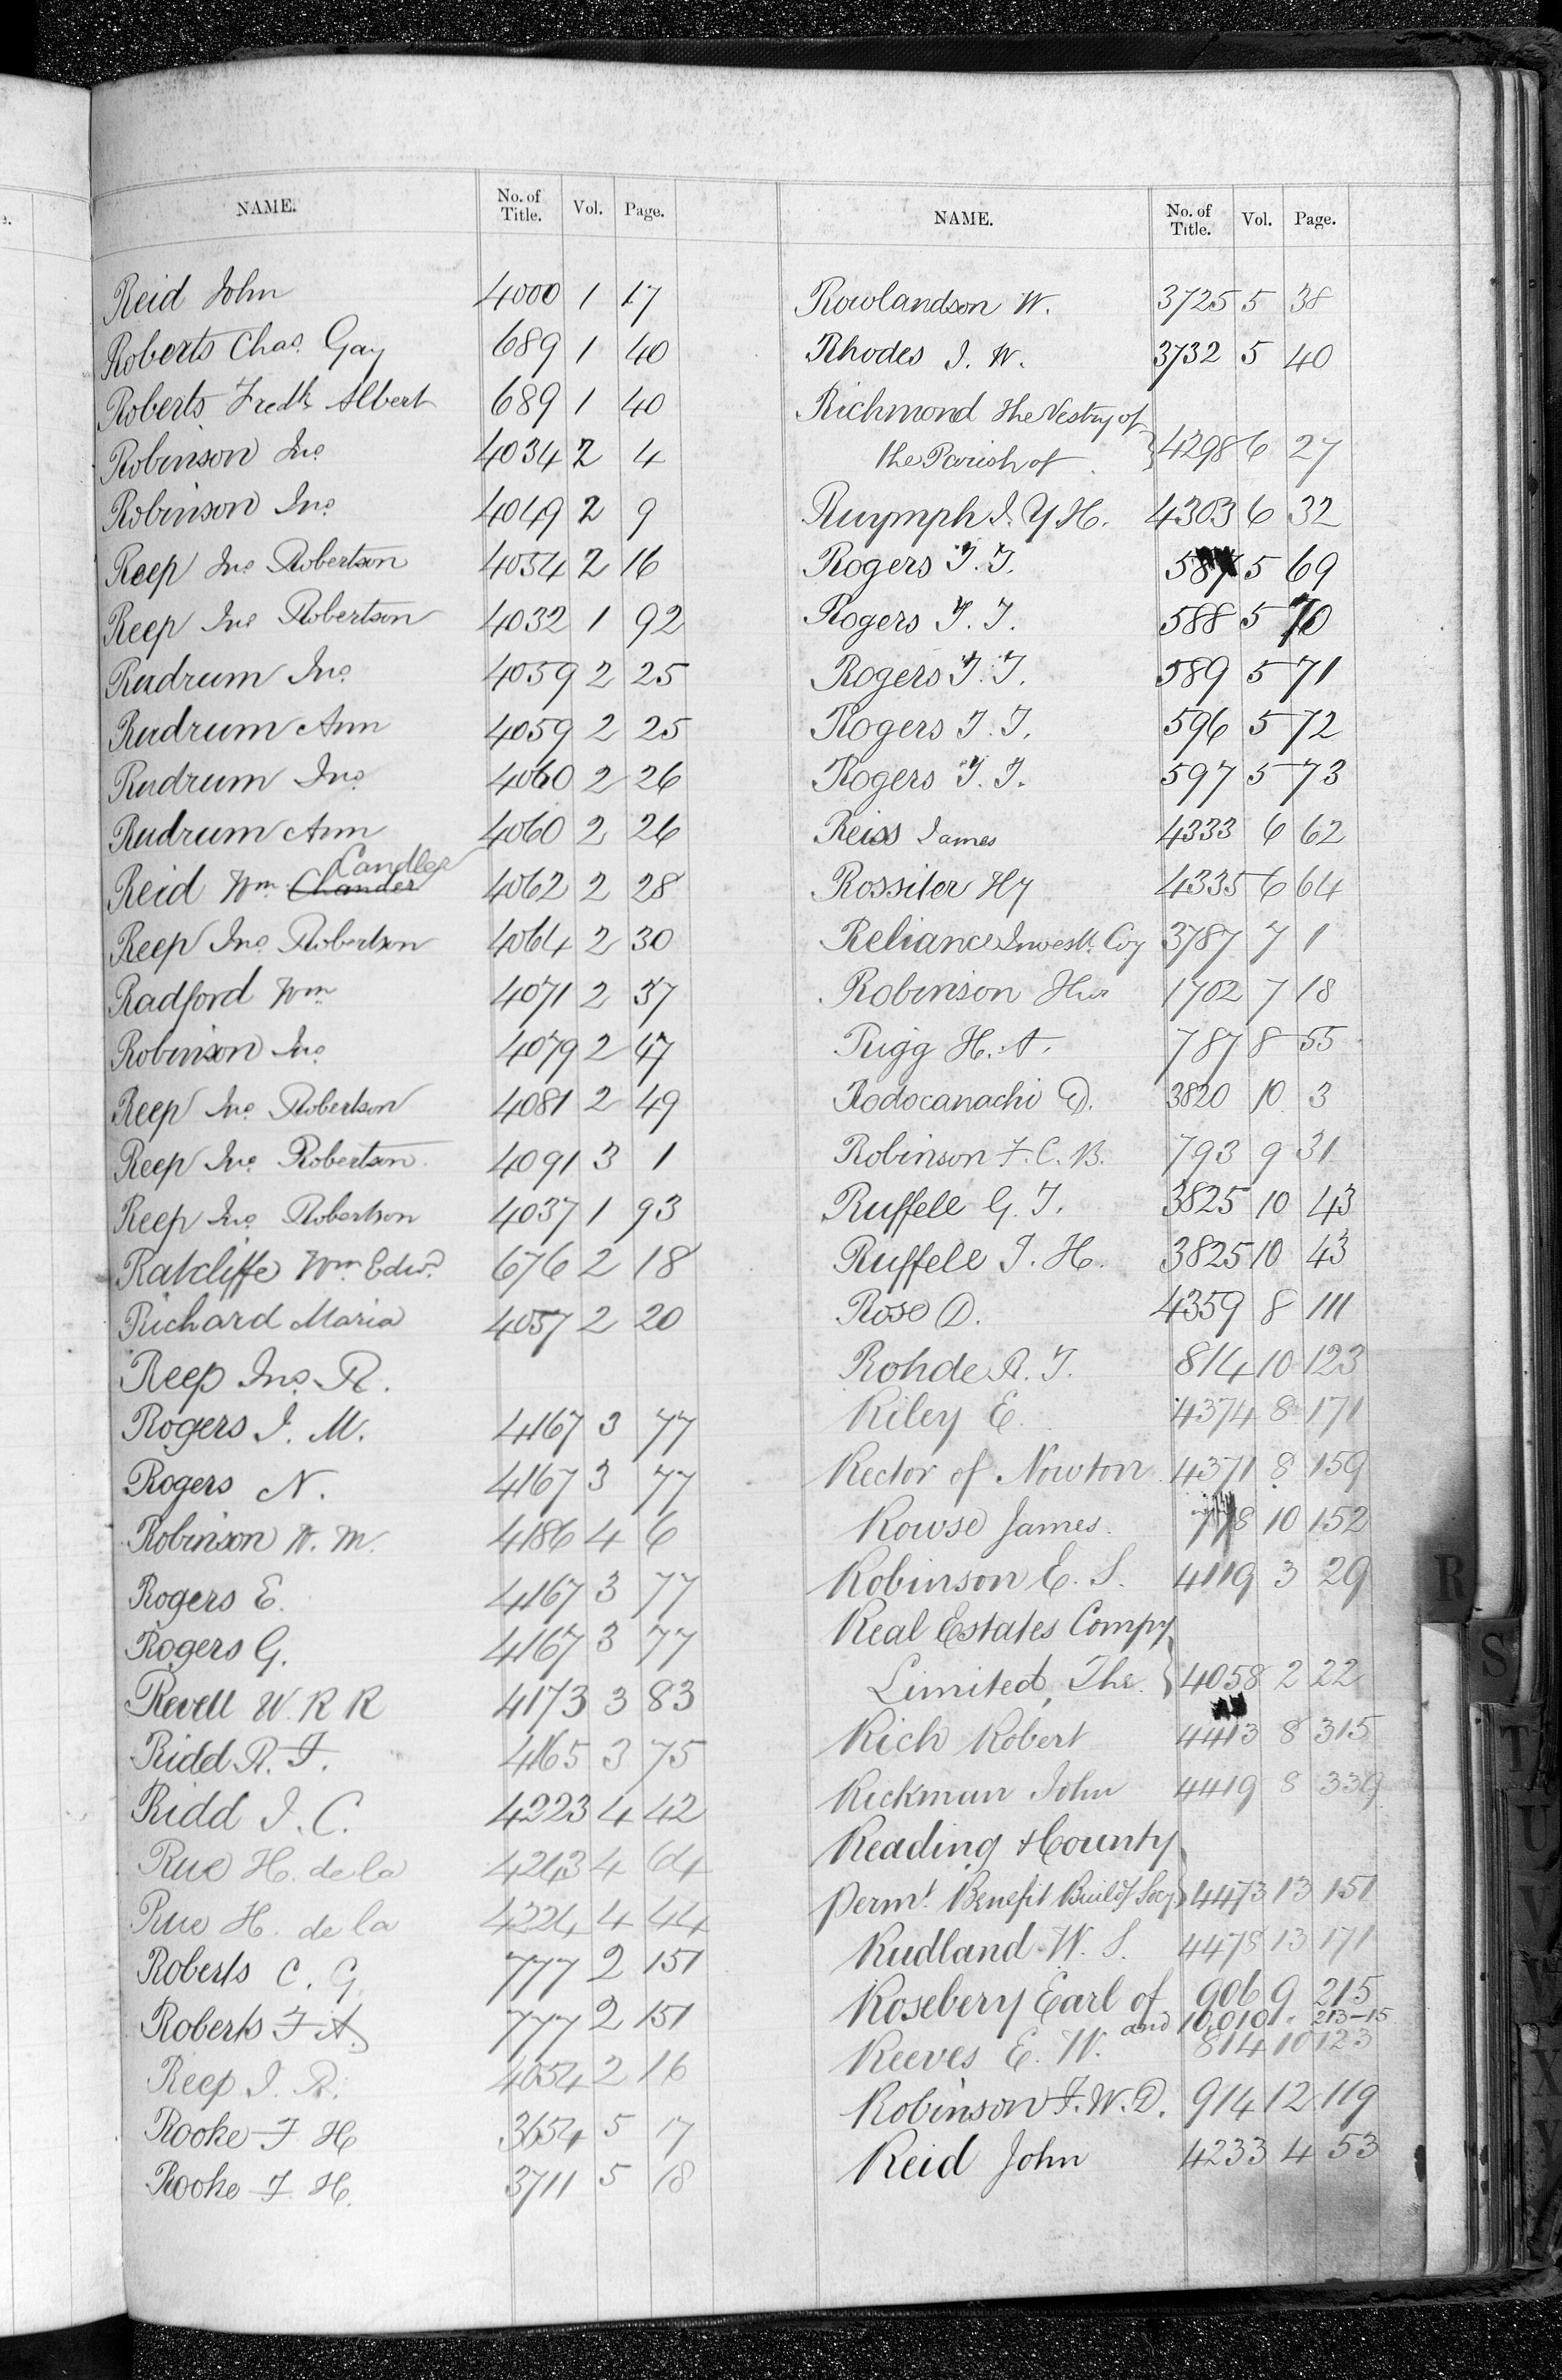 NAME. No. of Title. Vol. Page.
Reid John 4000 1 17
Roberts Chas. Gay 689 1 40
Roberts Fredk Albert 689 1 40
Robinson Jno 4034 2 4
Robinson Jno 4049 2 9
Reep Jno Robertson 4054 2 16
Reep Jno Robertson 4032 1 92
Rudrum Jno 4059 2 25
Rudrum Ann 4059 2 25
Rudrum Jno 4060 2 26
Rudrum Ann 4060 2 26
Candler
Reid Wm Chander 4062 2 28
Reep Jno Robertson 4064 2 30
Radford Wm 4071 2 37
Robinson Jno 4079 2 47
Reep Jno Robertson 4081 2 49
Reep Jno Robertson 4091 3 1
Reep Jno Robertson 4037 1 93
Ratcliffe Wm Edwd 676 2 18
Richard Maria 4057 2 20
Reep Jno R.
Rogers J. M. 4167 3 77
Rogers N. 4167 3 77
Robinson W. M. 4186 4 6
Rogers E. 4167 3 77
Rogers G. 4167 3 77
Revell W. R R 4173 3 83
Ridd R. F. 4165 3 75
Ridd J. C. 4223 4 42
Rue H. de la 4243 4 64
Rue H. de la 4224 4 44
Roberts C. G 777 2 151
Roberts F A. 777 2 151
Reep J. R. 4054 2 16
Rooke F H 3654 5 17
Rooke F. H. 3711 5 18
NAME. No. of Title. Vol. Page.
Rowlandson W. 3725 5 38
Rhodes J. W. 3732 5 40
Richmond the Vestry of
the Parish of } 4298 6 27
Ruymph J. Y H. 4303 6 32
Rogers T. T. 587 5 69
Rogers T. T. 588 5 70
Rogers T. T. 589 5 71
Rogers T. T. 596 5 72
Rogers T. T. 597 5 73
Reiss James 4333 6 62
Rossiter Hy 4335 6 64
Reliance Investt. Coy 3787 7 1
Robinson 1702 7 18
Rigg H. A. 787 8 55
Rodocanachi D. 3820 10 3
Robinson F. C. B. 793 9 31
Ruffell G. T. 3825 10 43
Ruffell J. H. 3825 10 43
Rose D. 4359 8 111
Rohde R. T. 814 10 123
Riley E. 4374 8 171
Rector of Nowton 4371 8 159
Rowse James. 778 10 152
Robinson E. S. 4119 3 29
Real Estates Compy
Limited, The } 4058 2 22
Rich Robert 4413 8 315
Rickman John 4419 8 339
Reading & County
Permt. Benefit Buildg Socy } 4473 13 151
Rudland W. S. 4478 13 171
Rosebery Earl of 906 9 215
and 10,010 " 213-15
Reeves E. W. 814 10 123
Robinson F. W. D. 914 12 119
Reid John 4233 4 53
R
S
T
U
V
W
X
Y